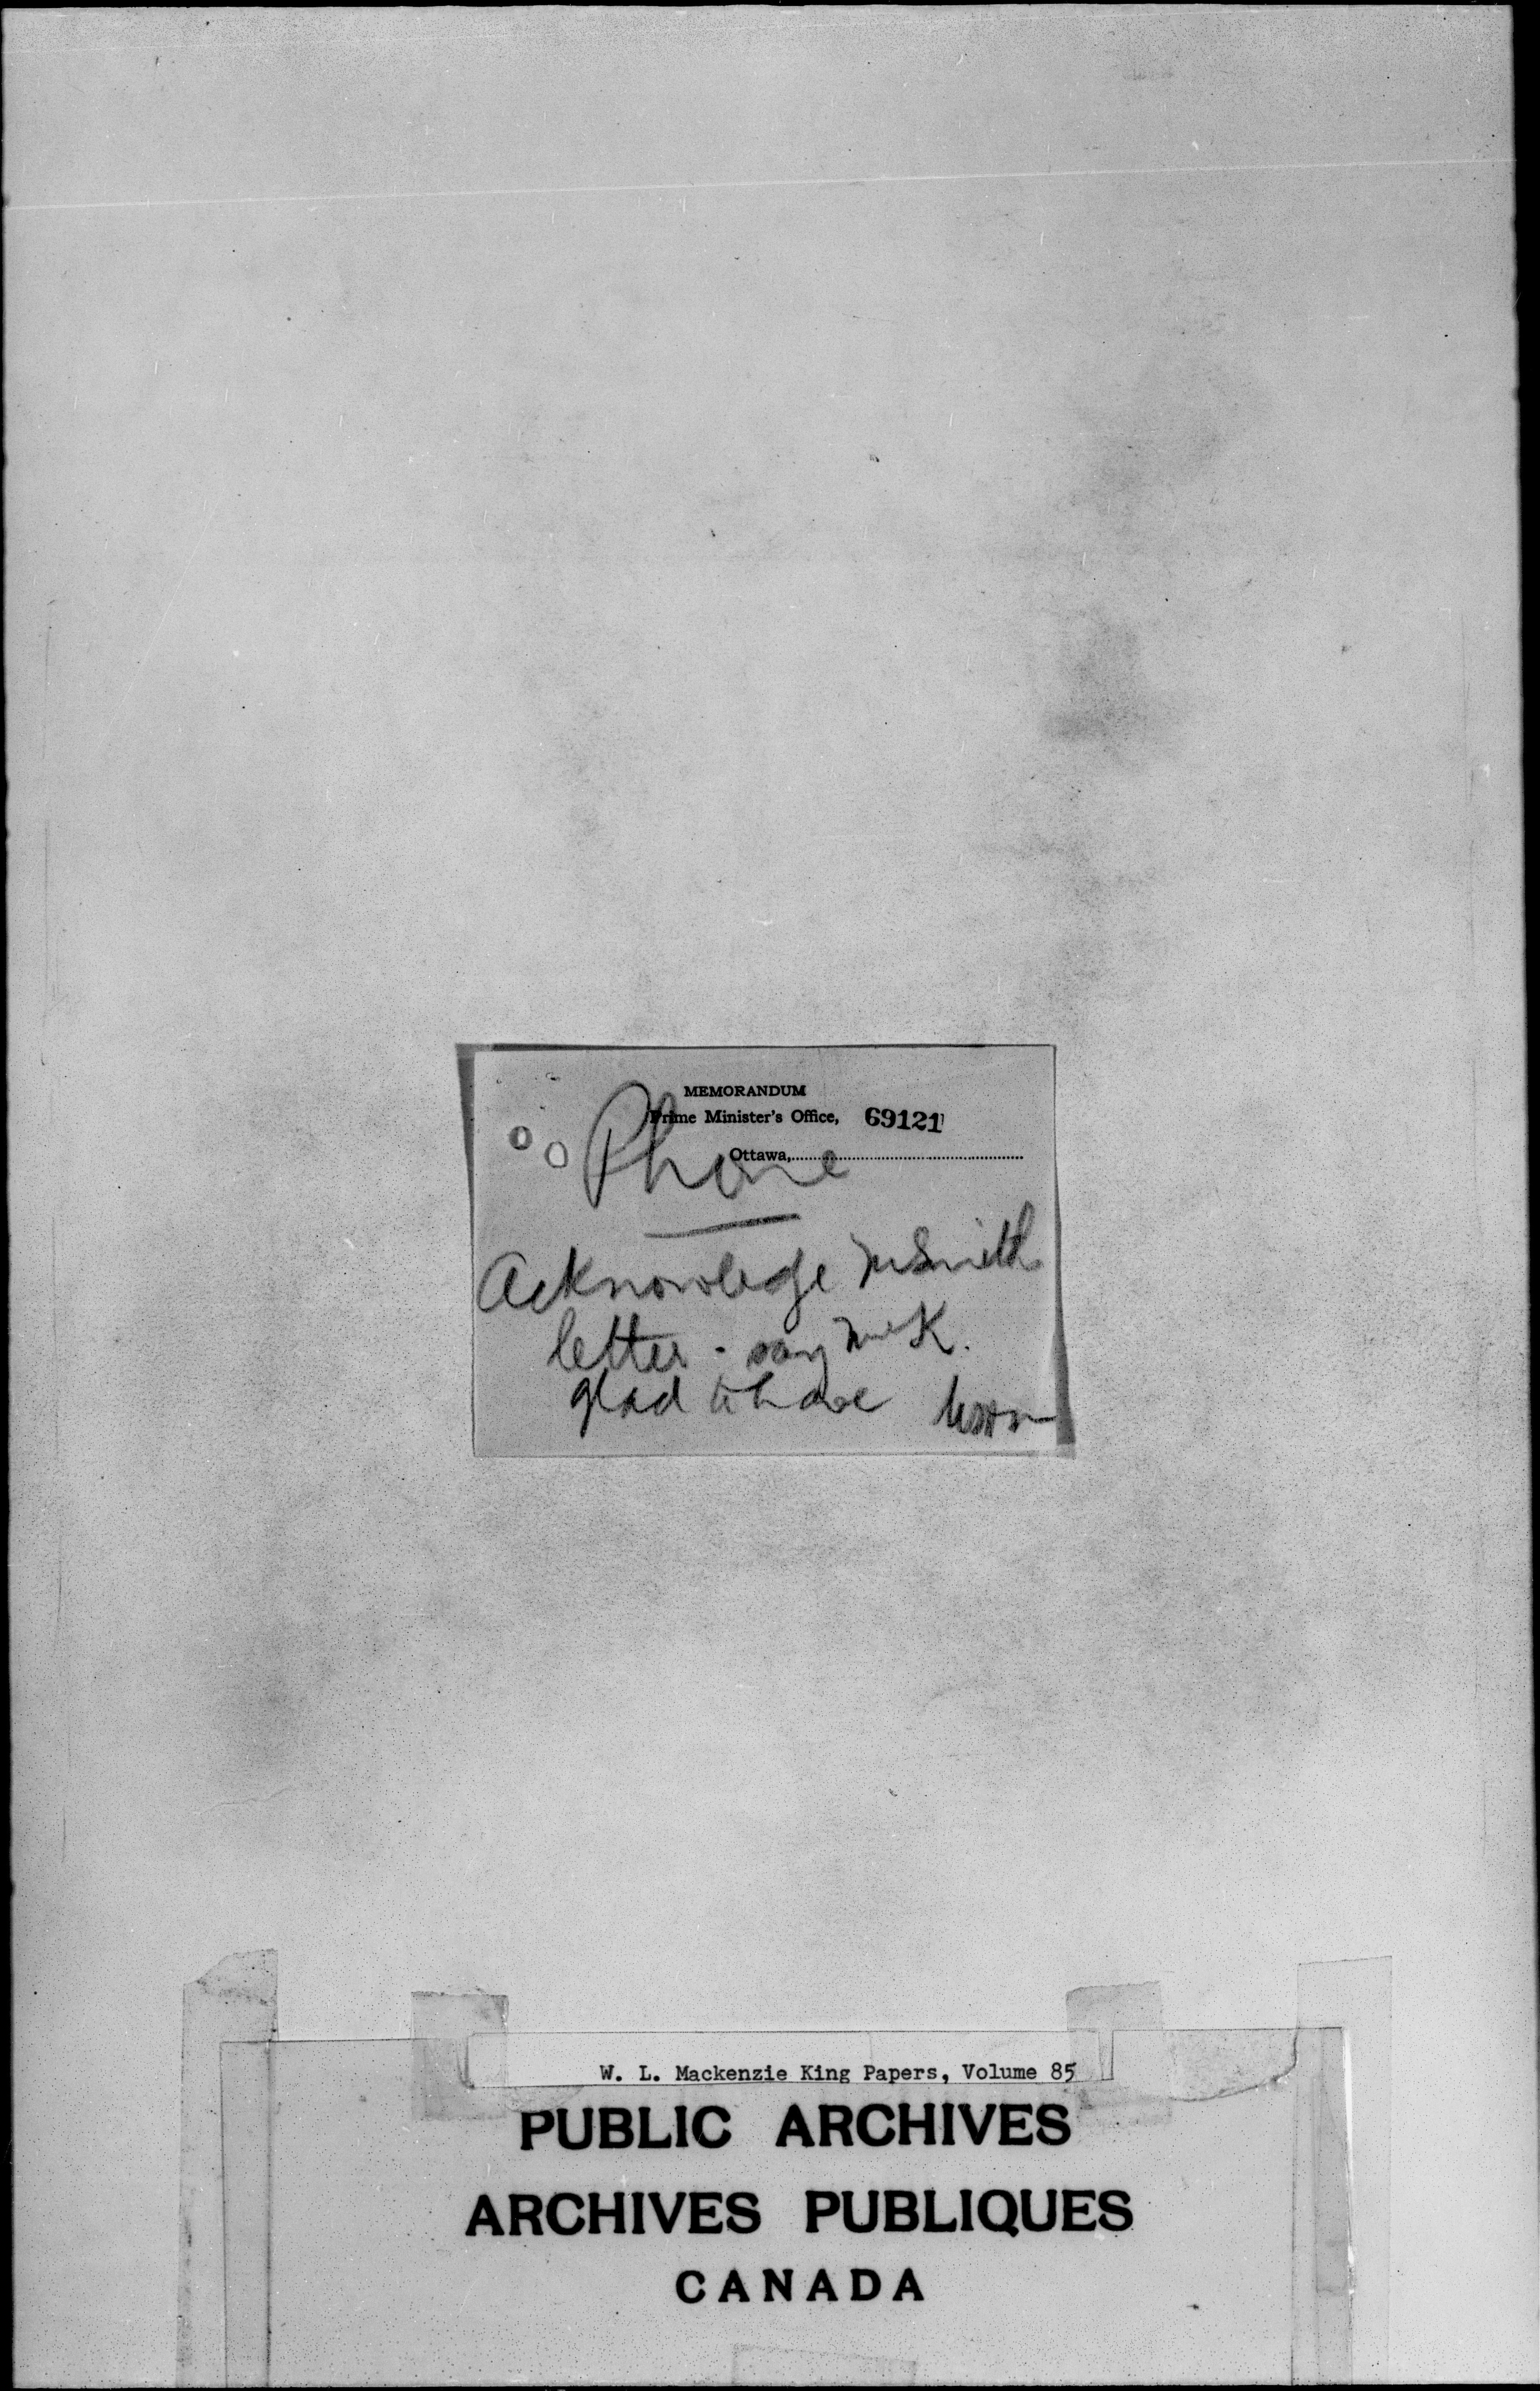 MEMORANDUM
Prime Minister's Office, 69121
Ottawa,
Phone
Acknowledge Mr Smith
letter - say Mr K.
glad to have
W. L. Mackenzie King Papers, Volume 85
PUBLIC ARCHIVES
ARCHIVES PUBLIQUES
CANADA